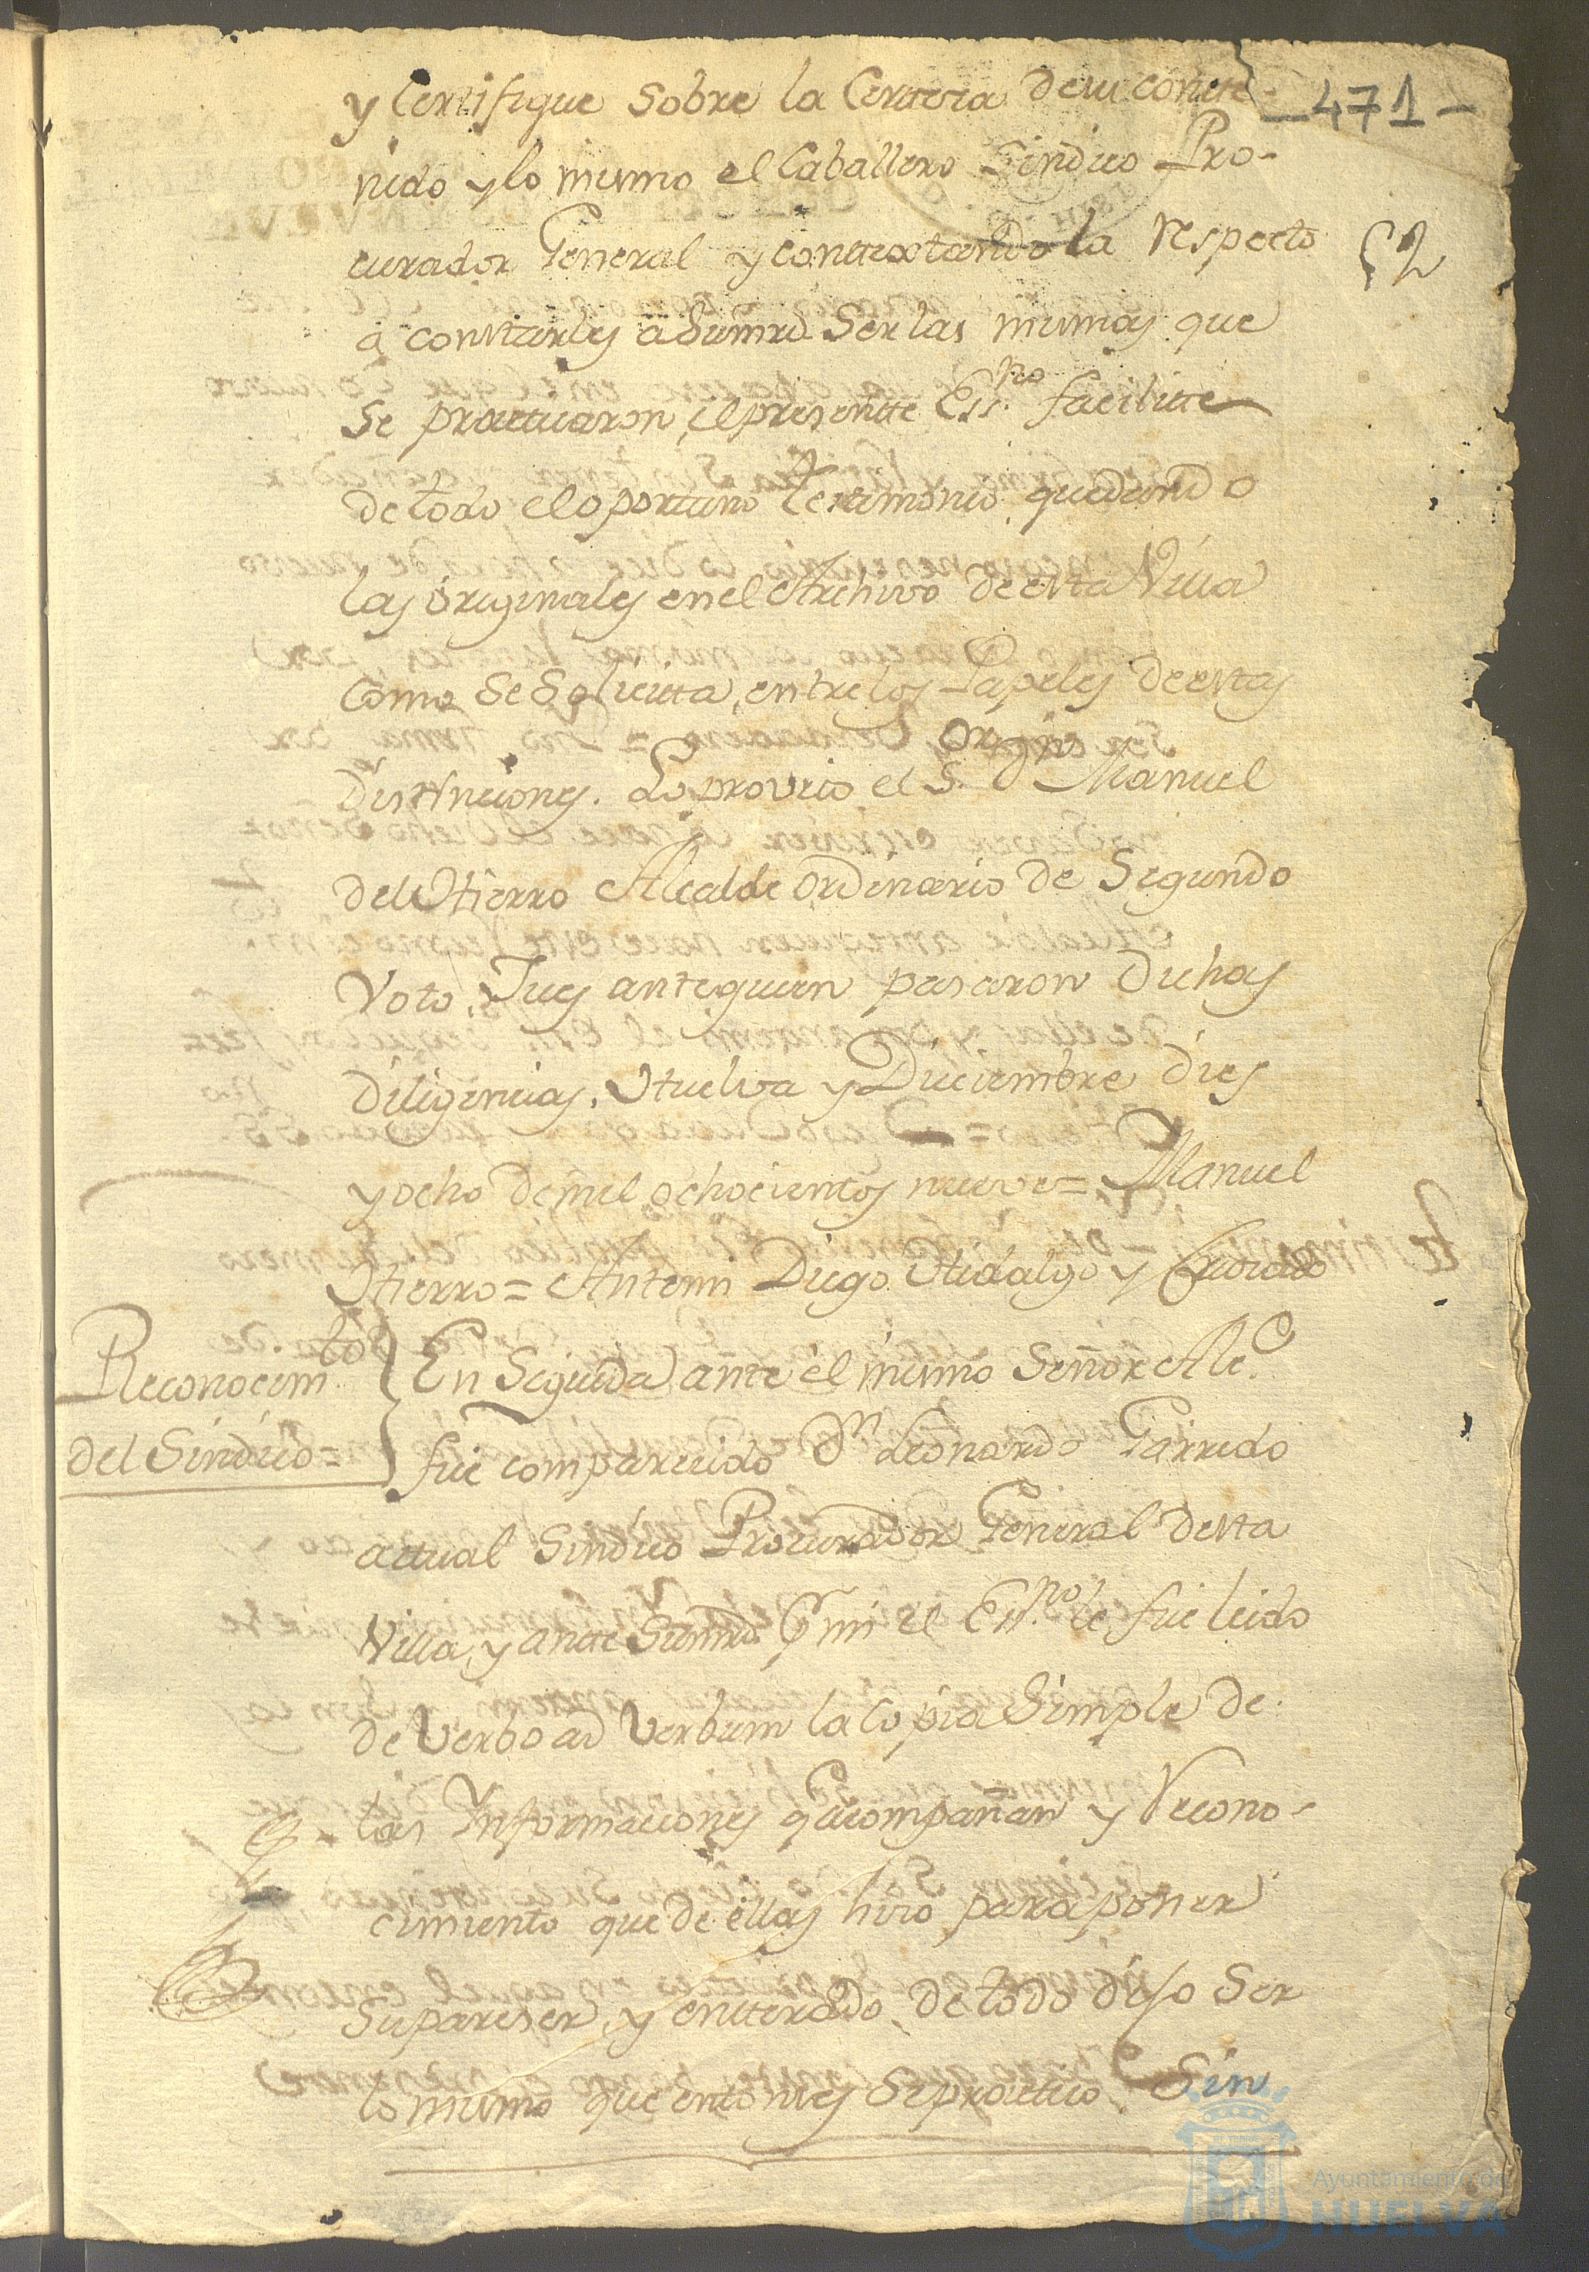 y Certifique sobre la Certeza de su conte-
-471-
nido y lo mismo el Caballero Sindico Pro-
curador General y contextandola respecto
52
a constarles a Sumrd. ser las mismas que
se practicaron, el presente Essno. facilite
de todo el oportuno testimonio quedando
las originales en el Archivo de esta Villa
como se solicita, entre los Papeles de estas
Distinciones. Lo proveio el S. Dn Manuel
del Hierro Alcalde ordinario de Segundo
Voto, Jues ante quien pasaron dichas
diligencias. Huelva y Diciembre dies
y ocho de mil ochocientos nueve = Manuel
Hierro = Antemi Diego Hidalgo y
Reconocimto
del Sindico =
En Seguida ante el mismo Señor Alce.
fue comparecido Dn Leonardo Garrido
actual Sindico Procurador General desta
Villa, y ante Sumrd. Pr mi el Essno. le fue leido
de Verbo ad Verbum la Copia Simple de
las Informaciones qe acompañan y recono-
cimiento que de ellas hizo para poner
su pareser, y enterado de todo dijo Ser
lo mismo que entonces se practico. Sin
Ayuntamiento de
HUELVA